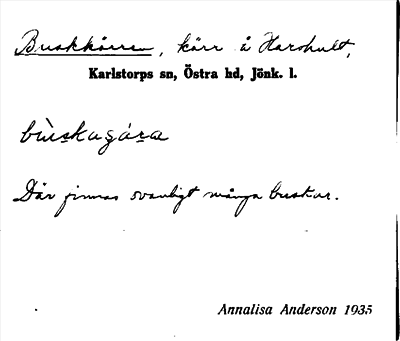 Buskkärre, kärr å Harshult,
Karlstorps sn, Östra hd, Jönk. l.
Där finnas ovanligt många buskar.
Annalisa Anderson 1935